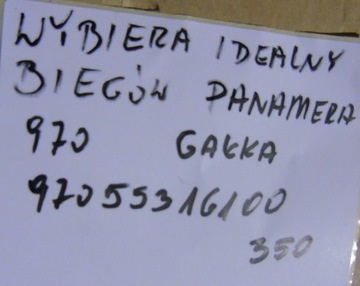 WYBIERA IDEALNY
BIEGÓW PANAMERA
970 GAŁKA
97055316100
350